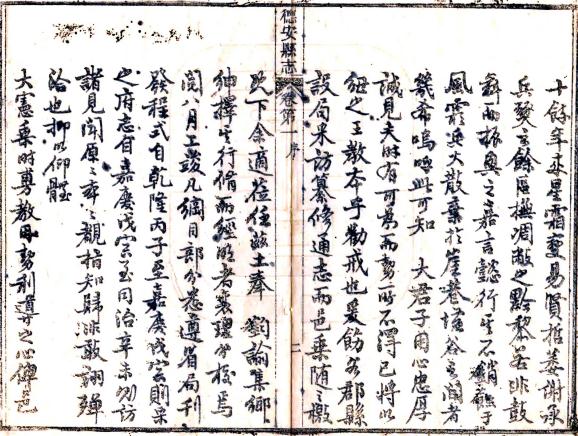 十餘年來星霜變易賢哲萎謝承
兵燹之餘區撫凋敝之黔黎若非鼓
舞而振興之嘉言懿行其不銷蝕于
風霾兵火散棄於崖巷墟谷之間者
幾希嗚呼此可知　大君子用心忠厚
誠見夫時有可為而勢所不得已將以
之王教本乎勸戒也爰飭各郡縣
設局采訪纂修通志而邑乘隨之檄
德安縣志　卷第一　序　二
下余適蒞任茲土奉　劄諭集鄉
紳擇其行脩而經明者襄理分校焉
閱八月工竣凡綱目部分悉遵省局刊
發程式自乾隆丙子至嘉慶戊寅則采
之府志自嘉慶戊寅至同治辛未則訪
諸見聞原之本之觀指知歸非敢詡殫
洽也抑以仰體
大憲乘時勇教因勢利導之心俾邑